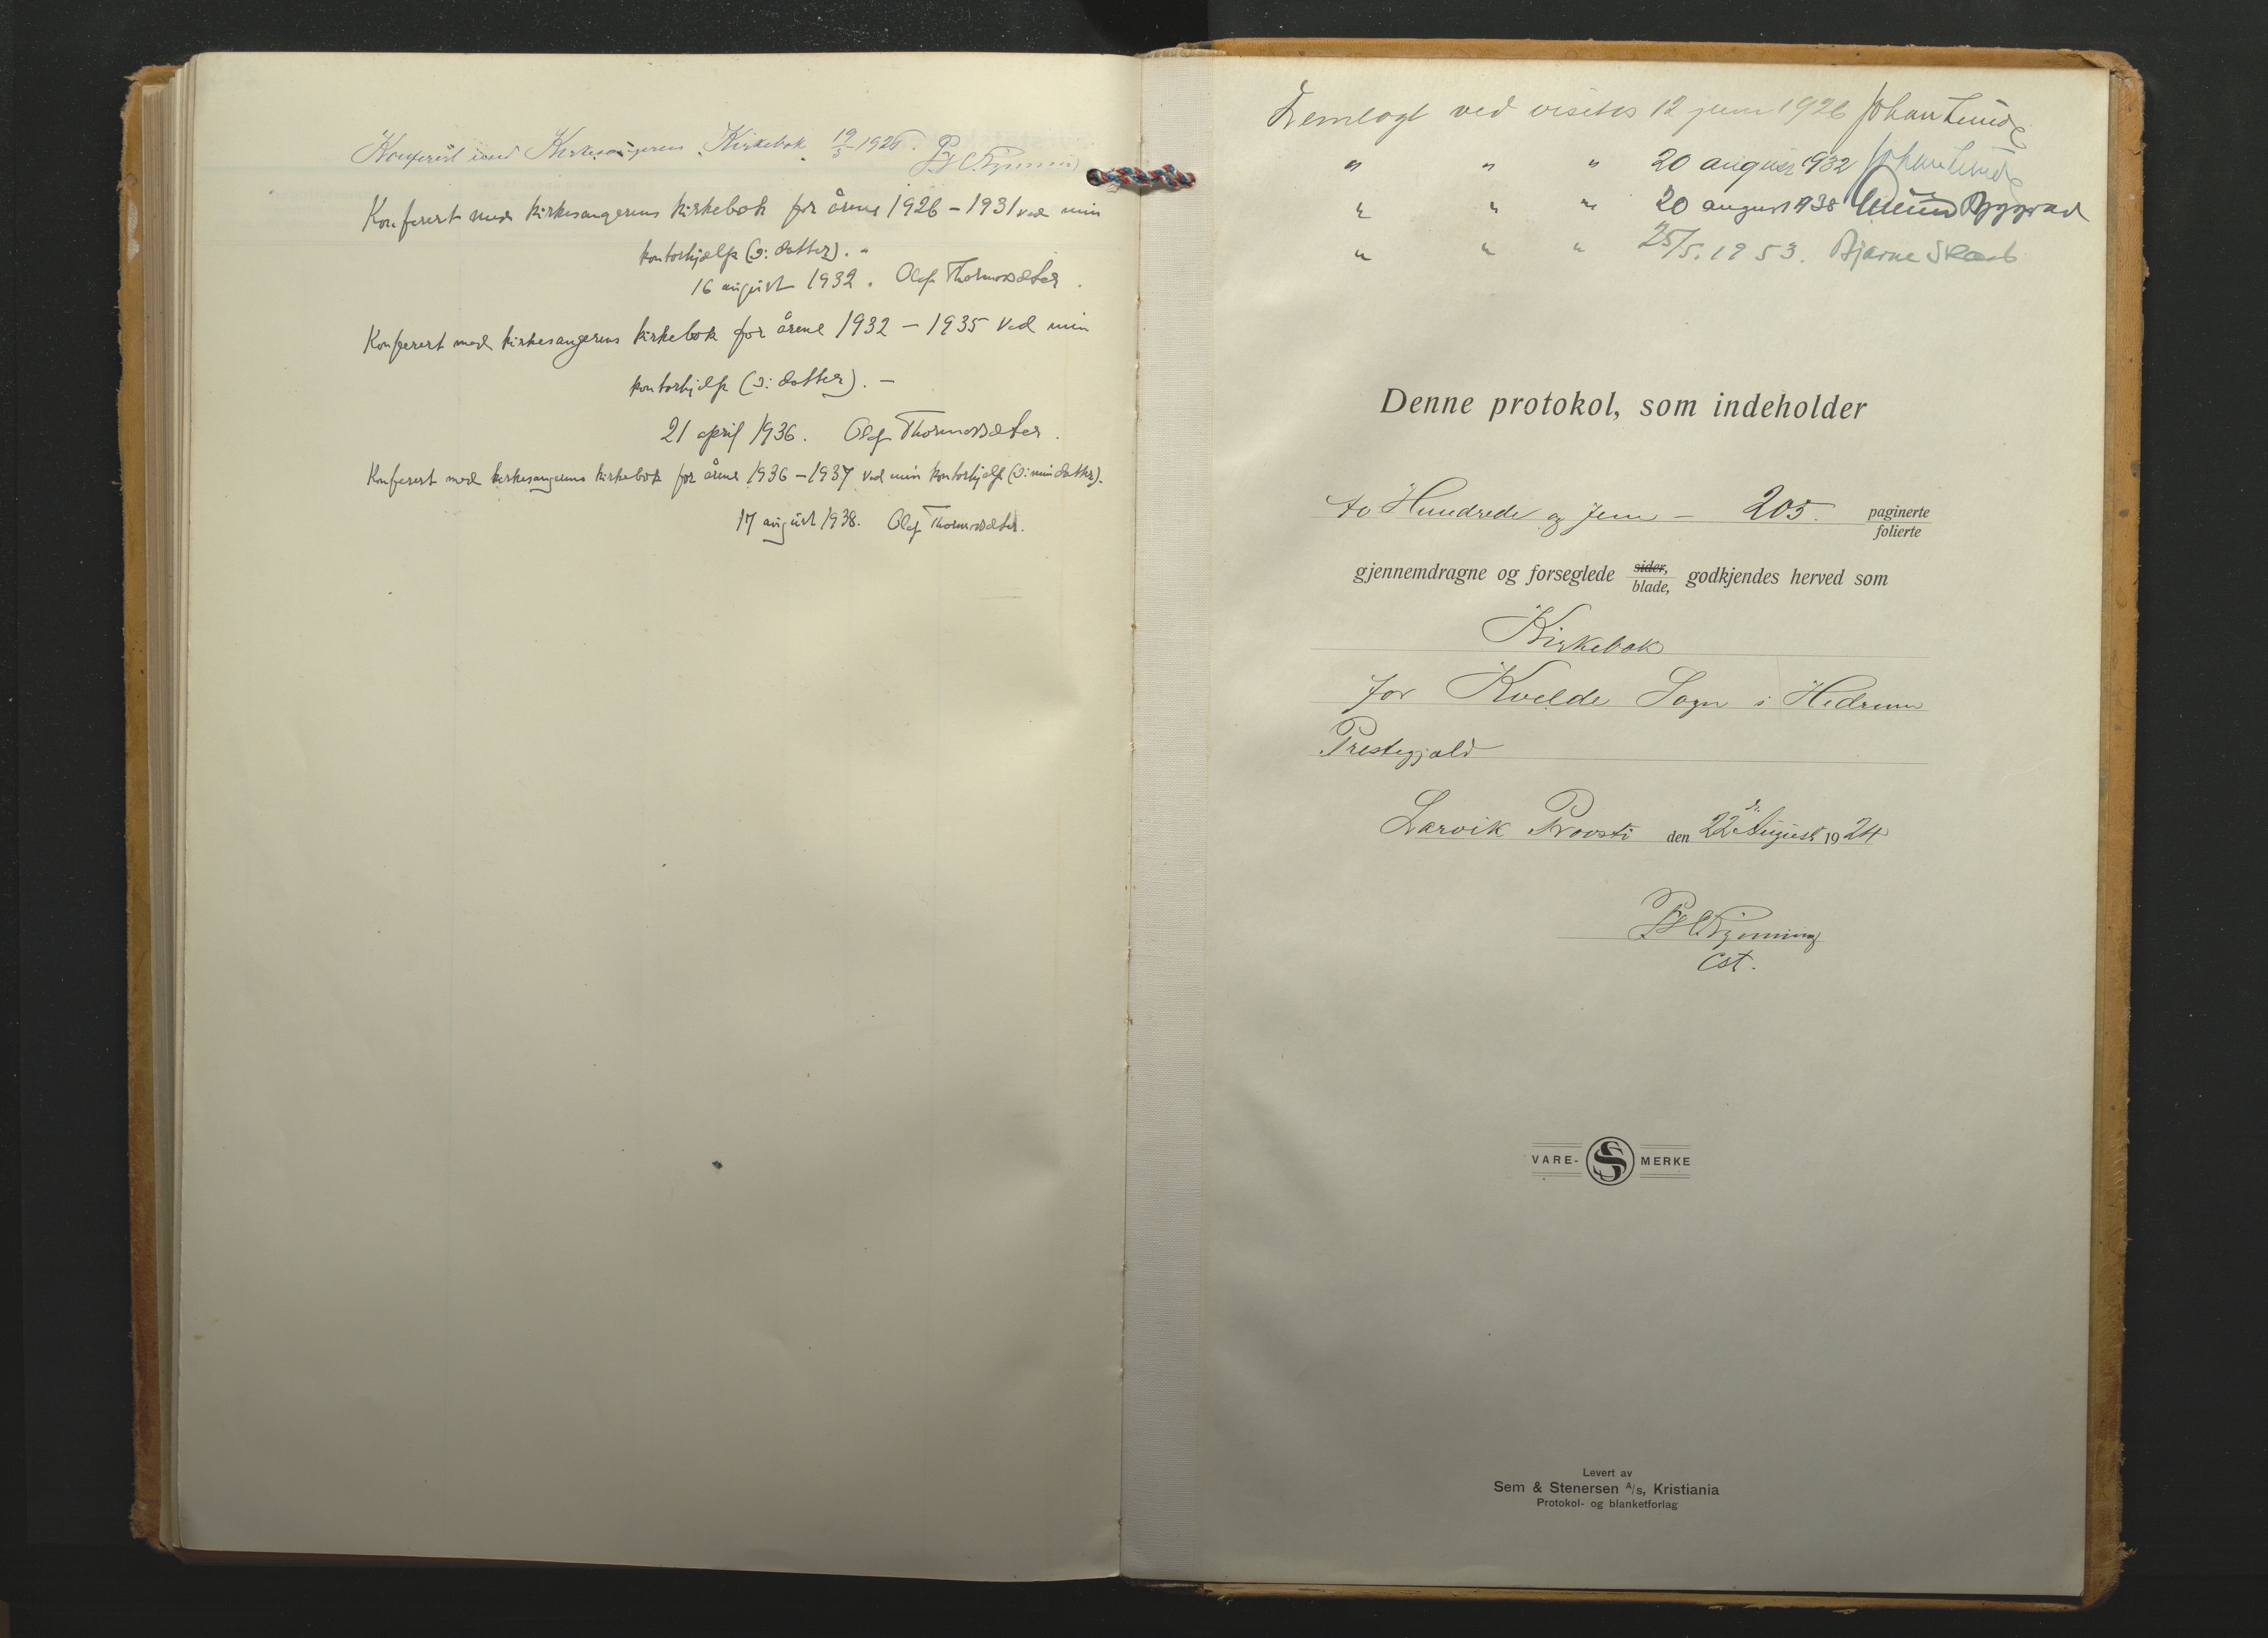 Konferert med Kirkesangerens Kirkebok 19/3 1926.
Konferert med kirkesangerens kirkebok for årene 1926 – 1931 ved min
kontorhjælp (ɔ: datter). "
16 august 1932. Olaf Thormodsæter.
Konferert med kirkesangerens kirkebok for årene 1932 – 1935 ved min
kontorhjelp (ɔ: datter). –
21 april 1936. Olaf Thormodsæter.
Konferert med kirkesangerens kirkebok for årene 1936 – 1937 ved min kontorhjelp (ɔ: min datter).
17 august 1938. Olaf Thormodsæter.
Fremlagt ved visitas 12 juni 1926 Johan Lunde
" " " 20 august 1932 Johan Lunde
" " " 20 august 1938
" " " 25/5. 1953. Bjarne Skard
Denne protokol, som indeholder
to Hundrede og fem – 205. paginerte
folierte
gjennemdragne og forseglede sider, blade, godkjendes herved som
Kirkebok
for Kvelde Sogn i Hedrum
Prestegjæld
Larvik Provsti den 22de August 1924
cst.
VARE- S MERKE
Levert av
Sem & Stenersen A/s, Kristiania
Protokol- og blanketforlag